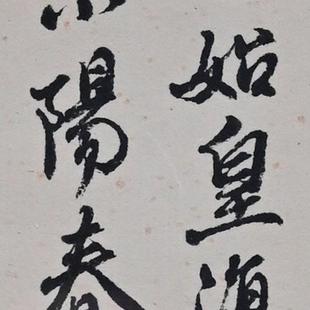 始皇
陽春